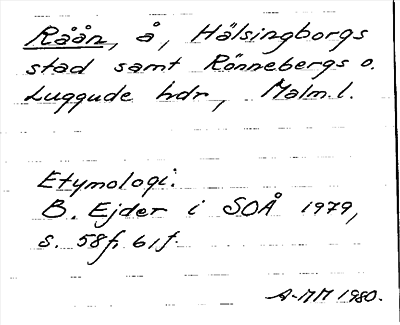 Råån, å, Hälsingborgs
stad samt Rönnebergs o.
Luggude hdr, Malm. l.
Etymologi.
B. Ejder i SOÅ 1979,
s. 58f, 61f.
A-MM 1980.